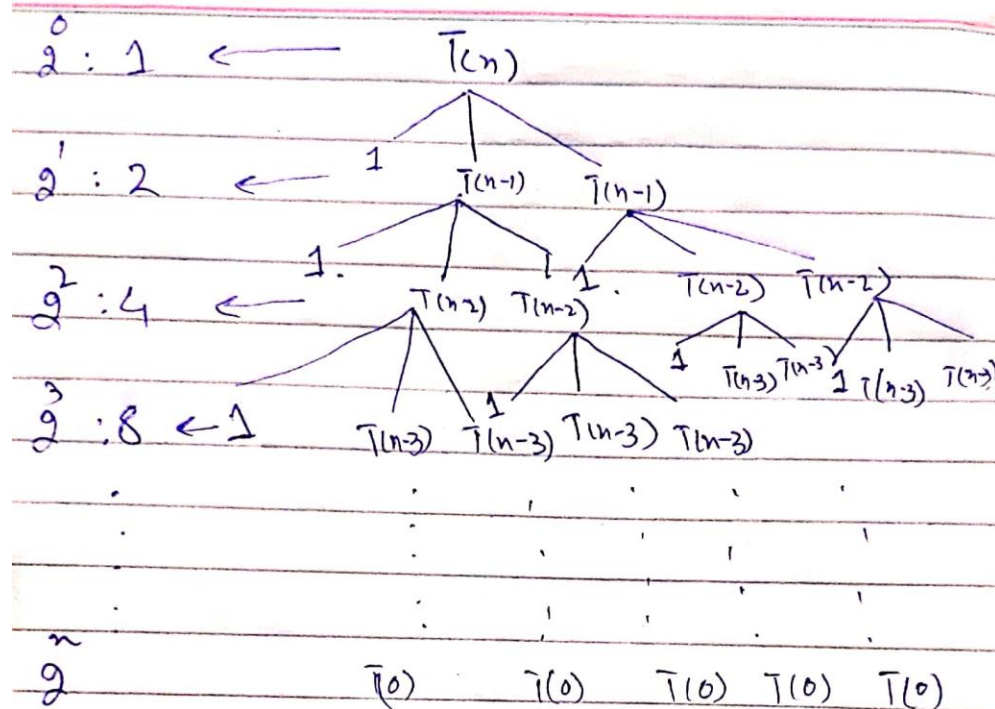 2⁰ : 1 ← T(n)
2¹ : 2 ← 1 T(n-1) T(n-1)
2² : 4 ← 1. T(n-2) T(n-2) 1. T(n-2) T(n-2)
1 T(n-3) T(n-3) 1 T(n-3) T(n-3)
2³ : 8 ← 1 T(n-3) T(n-3) 1 T(n-3) T(n-3)
2ⁿ T(0) T(0) T(0) T(0) T(0)